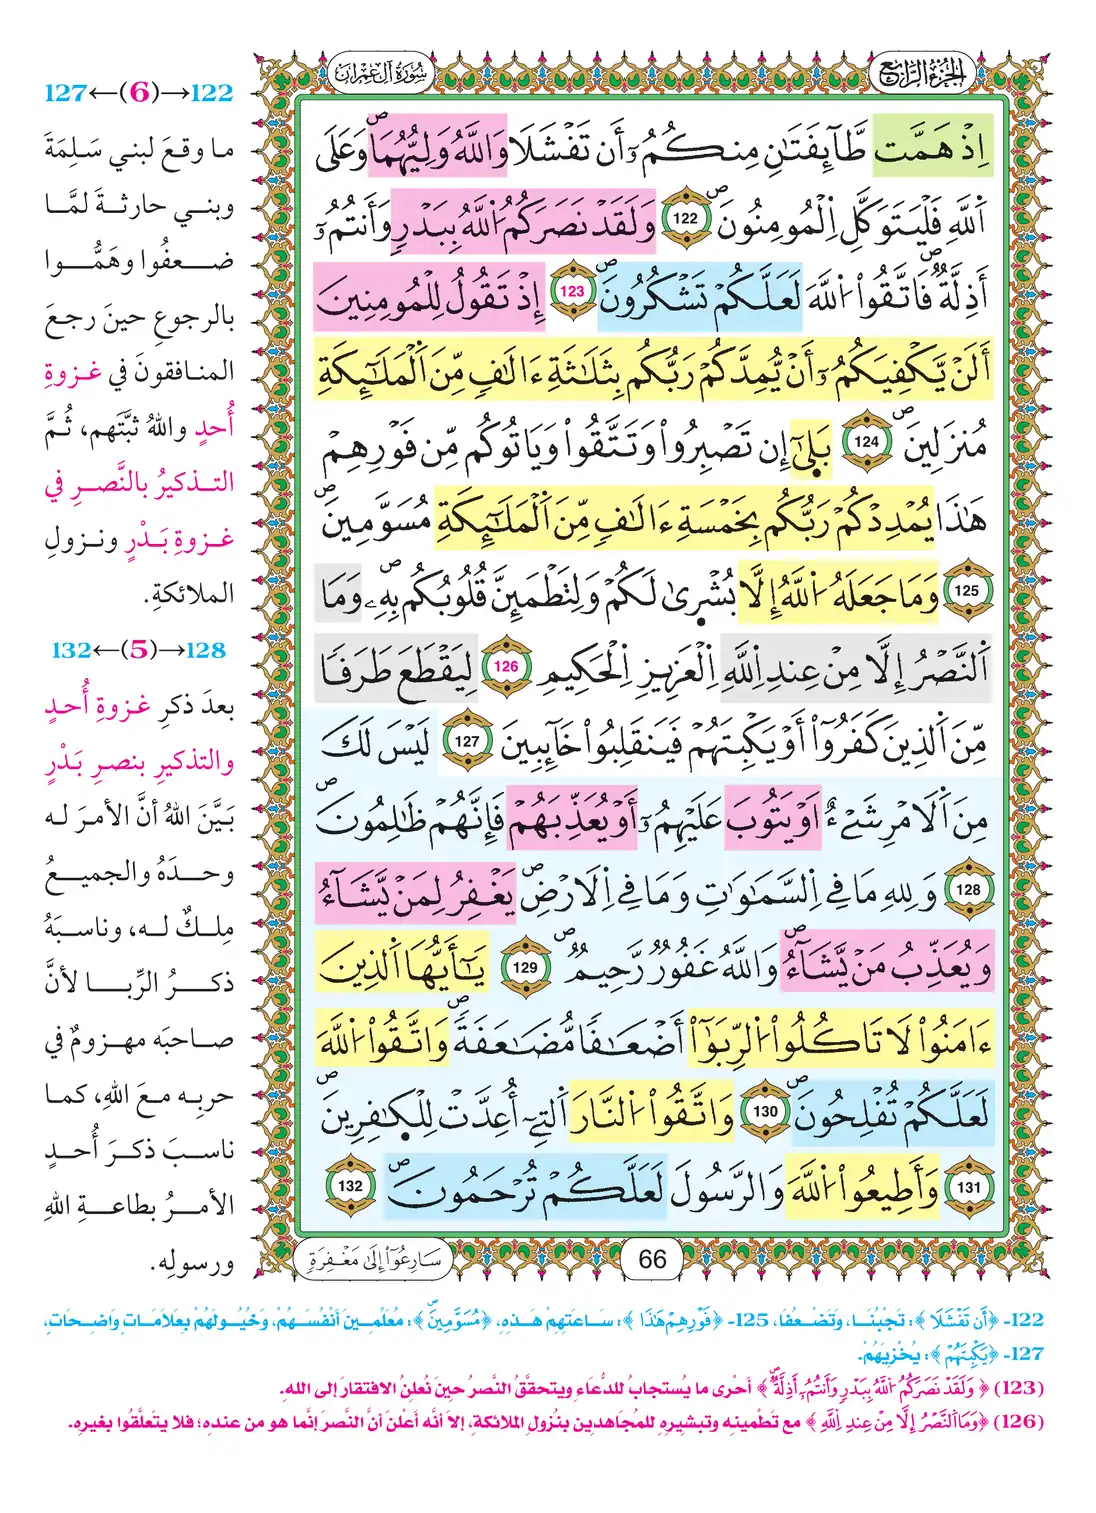 الجزء الرابع
سورة آل عمران
إِذْ هَمَّت طَّآئِفَتَٰنِ مِنكُمُۥٓ أَن تَفْشَلَا وَاللَّهُ وَلِيُّهُمَاۖ وَعَلَى
اَ۬للَّهِ فَلْيَتَوَكَّلِ اِ۬لْمُومِنُونَۖ 122 وَلَقَدْ نَصَرَكُمُ اُ۬للَّهُ بِبَدْرٍ وَأَنتُمُۥٓ
أَذِلَّةٌۖ فَاتَّقُوا۟ اُ۬للَّهَ لَعَلَّكُمْ تَشْكُرُونَۖ 123 إِذْ تَقُولُ لِلْمُومِنِينَ
أَلَنْ يَّكْفِيَكُمُۥٓ أَنْ يُّمِدَّكُمْ رَبُّكُم بِثَلَٰثَةِ ءَالَٰفٍ مِّنَ اَ۬لْمَلَٰٓئِكَةِ
مُنزَلِينَۖ 124 بَلَىٰٓ إِن تَصْبِرُوا۟ وَتَتَّقُوا۟ وَيَاتُوكُم مِّن فَوْرِهِمْ
هَٰذَا يُمْدِدْكُمْ رَبُّكُم بِخَمْسَةِ ءَالَٰفٍ مِّنَ اَ۬لْمَلَٰٓئِكَةِ مُسَوَّمِينَۖ
125 وَمَا جَعَلَهُ اُ۬للَّهُ إِلَّا بُشْرَىٰ لَكُمْ وَلِتَطْمَئِنَّ قُلُوبُكُم بِهِۦۖ وَمَا
اَ۬لنَّصْرُ إِلَّا مِنْ عِندِ اِ۬للَّهِ اِ۬لْعَزِيزِ اِ۬لْحَكِيمِ 126 لِيَقْطَعَ طَرَفًا
مِّنَ اَ۬لَّذِينَ كَفَرُوٓا۟ أَوْ يَكْبِتَهُمْ فَيَنقَلِبُوا۟ خَآئِبِينَ 127 لَيْسَ لَكَ
مِنَ اَ۬لَامْرِ شَےْءٌ اَوْ يَتُوبَ عَلَيْهِمُۥٓ أَوْ يُعَذِّبَهُمْ فَإِنَّهُمْ ظَٰلِمُونَۖ
128 وَلِلهِ مَا فِي اِ۬لسَّمَٰوَٰتِ وَمَا فِي اِ۬لَارْضِۖ يَغْفِرُ لِمَنْ يَّشَآءُ
وَيُعَذِّبُ مَنْ يَّشَآءُۖ وَاللَّهُ غَفُورٌ رَّحِيمٌۖ 129 يَٰٓأَيُّهَا اَ۬لَّذِينَ
ءَامَنُوا۟ لَا تَاكُلُوا۟ اُ۬لرِّبَوٰٓا۟ أَضْعَٰفًا مُّضَٰعَفَةًۖ وَاتَّقُوا۟ اُ۬للَّهَ
لَعَلَّكُمْ تُفْلِحُونَۖ 130 وَاتَّقُوا۟ اُ۬لنَّارَ اَ۬لَّتِےٓ أُعِدَّتْ لِلْكَٰفِرِينَۖ
131 وَأَطِيعُوا۟ اُ۬للَّهَ وَالرَّسُولَ لَعَلَّكُمْ تُرْحَمُونَۖ 132
66
سَارِعُوٓا۟ إِلَىٰ مَغْفِرَةٍ
127←(6)→122
ما وقعَ لبني سَلِمَةَ
وبني حارثةَ لمَّا
ضعفُوا وهَمُّوا
بالرجوعِ حينَ رجعَ
المنافقونَ في غزوةِ
أُحدٍ واللهُ ثبَّتَهم، ثُمَّ
التذكيرُ بالنَّصرِ في
غزوةِ بَدْرٍ ونزولِ
الملائكةِ.
132←(5)→128
بعدَ ذكرِ غزوةِ أُحدٍ
والتذكيرِ بنصرِ بَدْرٍ
بَيَّنَ اللهُ أنَّ الأمرَ له
وحدَهُ والجميعُ
مِلكٌ له، وناسبَهُ
ذكرُ الرِّبا لأنَّ
صاحبَه مهزومٌ في
حربِه معَ اللهِ، كما
ناسبَ ذكرَ أُحدٍ
الأمرُ بطاعةِ اللهِ
ورسولِه.
122- ﴿أَن تَفْشَلَا﴾: تَجْبُنَا، وَتَضْعُفَا، 125- ﴿فَوْرِهِمْ هَٰذَا﴾: سَاعَتِهِمْ هَذِهِ، ﴿مُسَوَّمِينَۖ﴾: مُعَلِّمِينَ أَنْفُسَهُمْ، وَخُيُولَهُمْ بِعَلَامَاتٍ وَاضِحَاتٍ،
127- ﴿يَكْبِتَهُمْ﴾: يُخْزِيَهُمْ.
(123) ﴿وَلَقَدْ نَصَرَكُمُ اُ۬للَّهُ بِبَدْرٍ وَأَنتُمُۥٓ أَذِلَّةٌۖ﴾ أحْرى ما يُستجابُ للدُّعَاءِ ويتحقَّقُ النَّصرُ حينَ نُعلنُ الافتقارَ إلى الله.
(126) ﴿وَمَا اَ۬لنَّصْرُ إِلَّا مِنْ عِندِ اِ۬للَّهِ﴾ مع تَطْمينِه وتبشيرِهِ للمُجاهدِين بنُزولِ الملائكةِ، إلا أنَّه أعْلنَ أنَّ النَّصرَ إنَّما هو من عنده؛ فلا يتَعلَّقُوا بغيرِه.